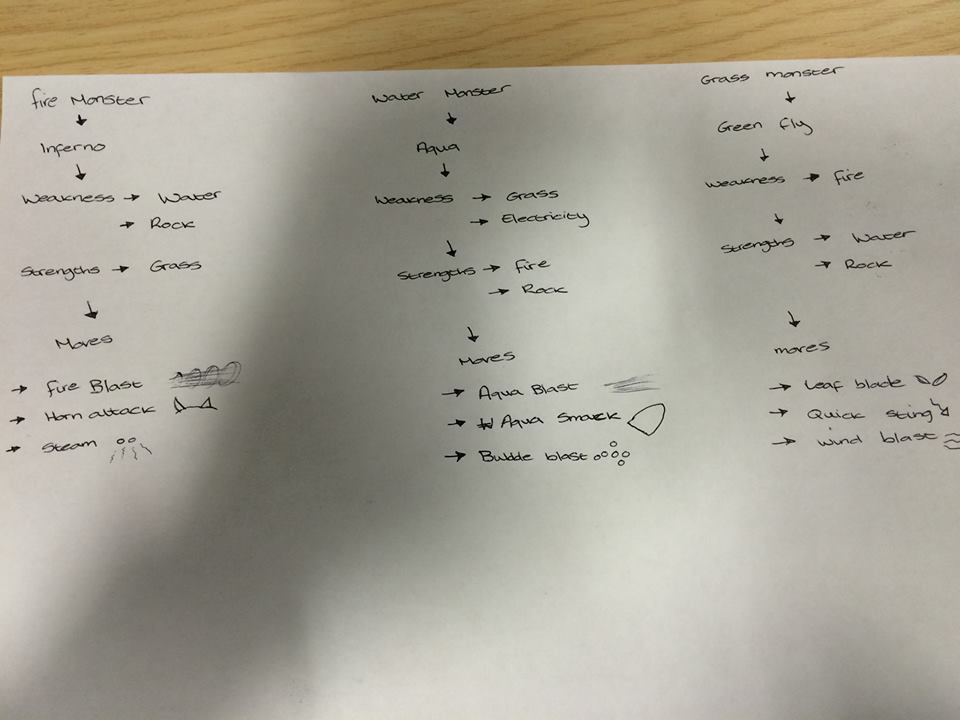 fire Monster
↓
Inferno
↓
Weakness → Water
→ Rock
Strengths → Grass
↓
Moves
→ fire Blast
→ Horn attack
→ Steam
Water Monster
↓
Aqua
↓
Weakness → Grass
→ Electricity
↓
Strengths → fire
→ Rock
↓
Moves
→ Aqua Blast
→ Aqua Smack
→ Bubble blast
Grass monster
↓
Green fly
↓
Weakness → fire
↓
Strengths → Water
→ Rock
↓
moves
→ Leaf blade
→ Quick sting
→ wind blast